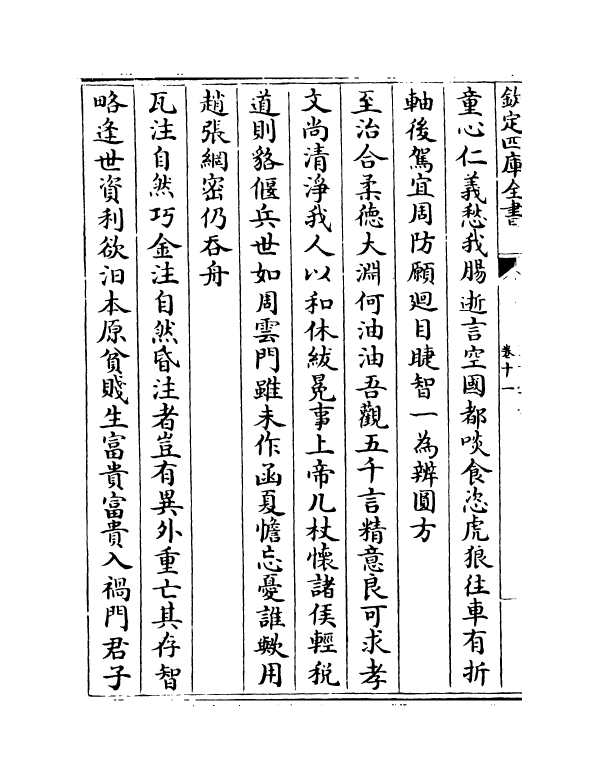 欽定四庫全書
卷十一
童心仁義愁我腸逝言空國都啖食恣虎狼往車有折
軸後駕宜周防願廻目睫智一為辨圓方
至治合柔德大淵何油油吾觀五千言精意良可求孝
文尚清淨我人以和休紱冕事上帝几杖懷諸侯輕税
道則貉偃兵世如周雲門雖未作函夏憺忘憂誰歟用
趙張網密仍吞舟
瓦注自然巧金注自然昏注者豈有異外重亡其存智
略逢世資利欲汩本原貧賤生富貴富貴入禍門君子